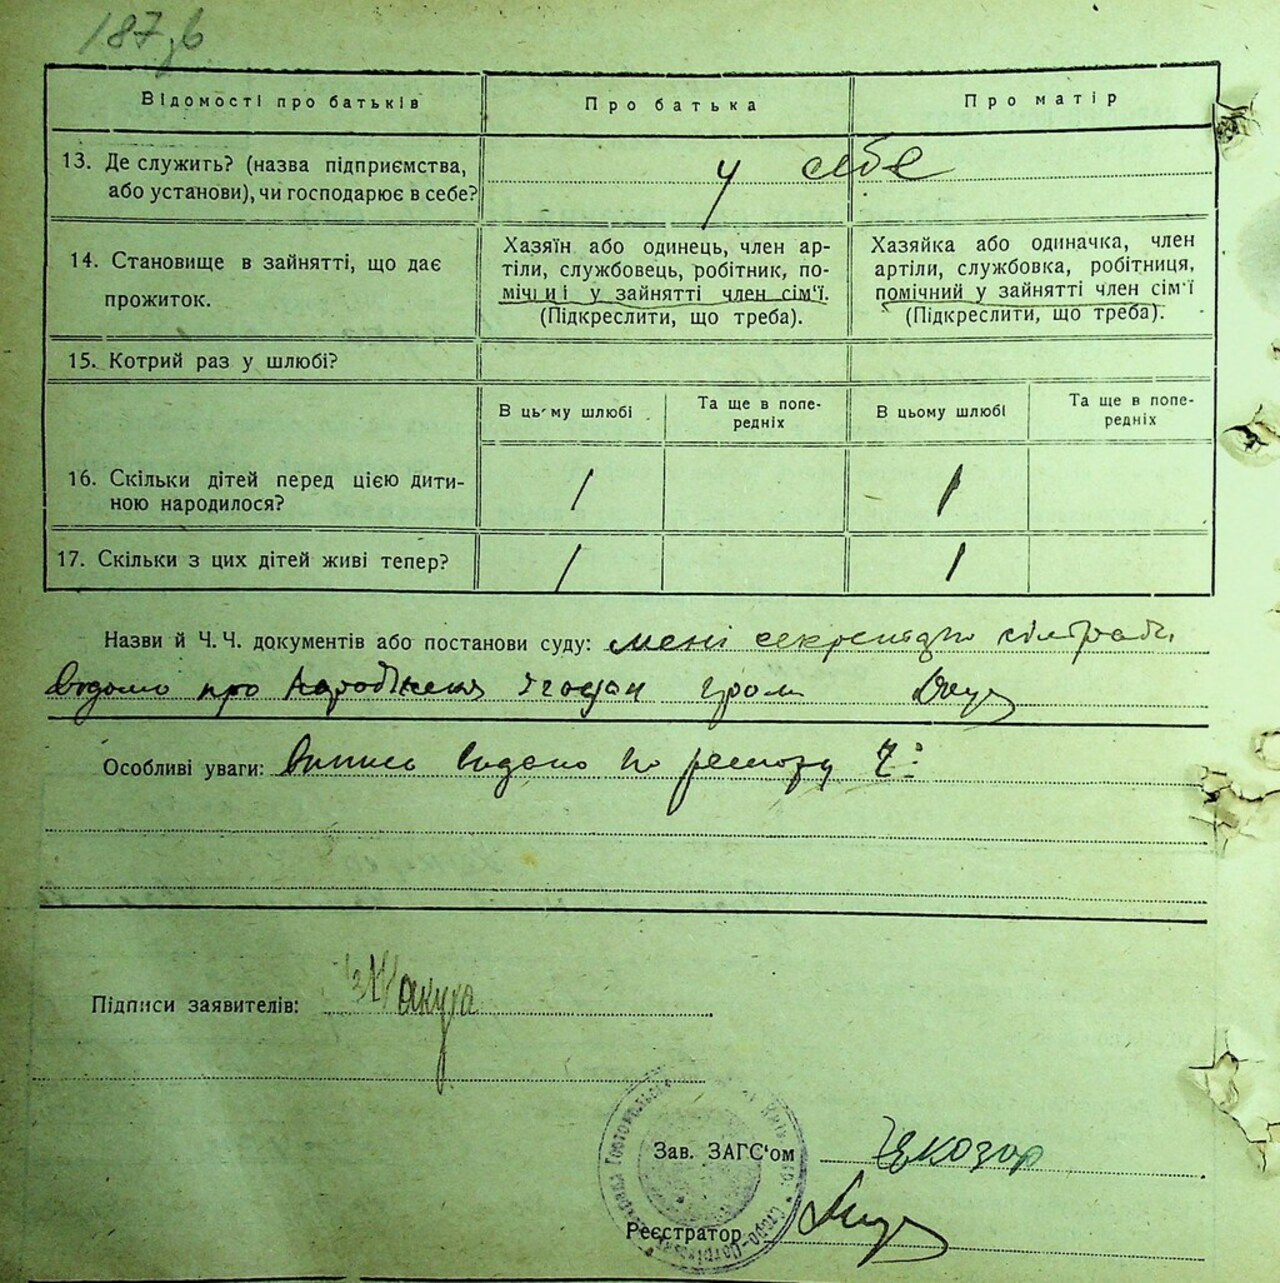 187зв
Відомості про батьків
Про батька
Про матір
13. Де служить? (назва підприємства,
або установи), чи господарює в себе?
у себе
14. Становище в зайнятті, що дає
прожиток.
Хазяїн або одинець, член ар-
тіли, службовець, робітник, по-
мічний у зайнятті член сім'ї.
(Підкреслити, що треба).
Хазяйка або одиначка, член
артіли, службовка, робітниця,
помічний у зайнятті член сім'ї
(Підкреслити, що треба).
15. Котрий раз у шлюбі?
В цьому шлюбі
Та ще в попе-
редніх
В цьому шлюбі
Та ще в попе-
редніх
16. Скільки дітей перед цією дити-
ною народилося?
1
1
17. Скільки з цих дітей живі тепер?
1
1
Назви й Ч. Ч. документів або постанови суду: мені секретарю сільради
відомо про народження
Особливі уваги: Випись видано по реєстру Ч:
Підписи заявителів:
Зав. ЗАГС'ом
Реєстратор